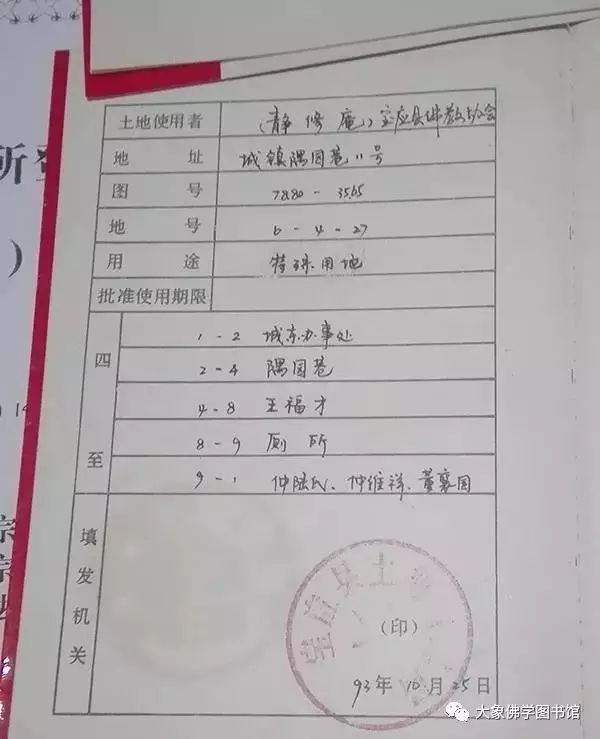 所
)
土地使用者 (静修庵)宝应县佛教协会
地 址 城镇隅园巷11号
图 号 7880-3565
地 号 6-4-27
用 途 特殊用地
批准使用期限
四至
1-2 城东办事处
2-4 隅园巷
4-8 王福才
8-9 厕所
9-1 仲陆氏、仲维祥、董襄国
填发机关
宝应县土
(印)
93年10月25日
大象佛学图书馆